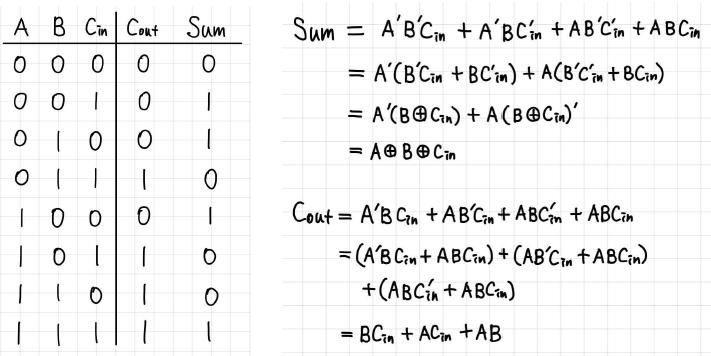 A B Cin Cout Sum
0 0 0 0 0
0 0 1 0 1
0 1 0 0 1
0 1 1 1 0
1 0 0 0 1
1 0 1 1 0
1 1 0 1 0
1 1 1 1 1
Sum = A'B'Cin + A'BC'in + AB'C'in + ABCin
= A'(B'Cin + BC'in) + A(B'C'in + BCin)
= A'(B⊕Cin) + A(B⊕Cin)'
= A⊕B⊕Cin
Cout = A'BCin + AB'Cin + ABC'in + ABCin
= (A'BCin + ABCin) + (AB'Cin + ABCin)
+ (ABC'in + ABCin)
= BCin + ACin + AB